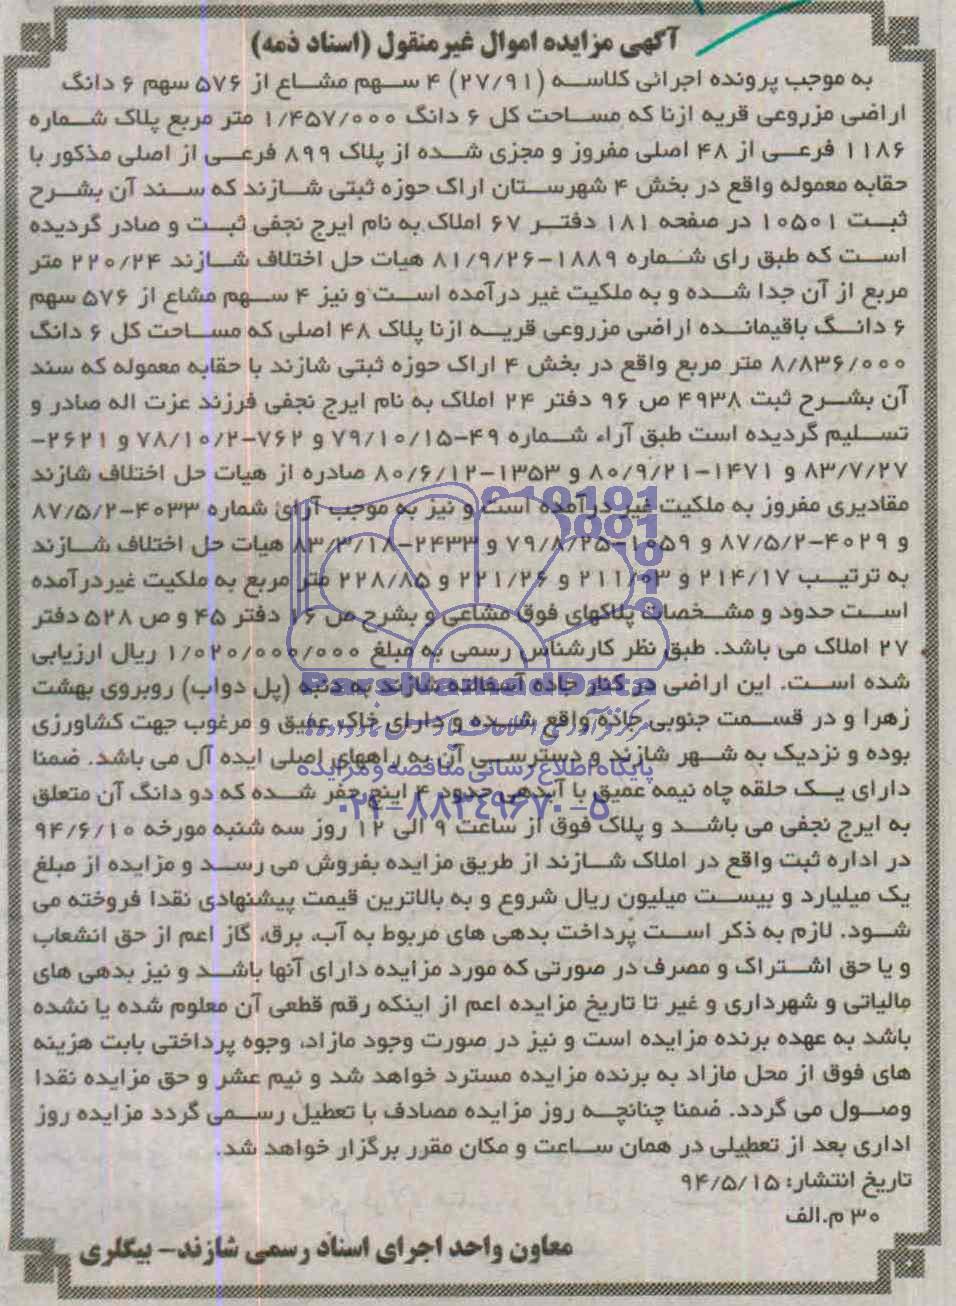 آگهی مزایده اموال غیرمنقول (اسناد ذمه)
به موجب پرونده اجرائی کلاسه (۲۷/۹۱) ۴ سهم مشاع از ۵۷۶ سهم ۶ دانگ
اراضی مزروعی قریه ازنا که مساحت کل ۶ دانگ ۱/۴۵۷/۰۰۰ متر مربع پلاک شماره
۱۱۸۶ فرعی از ۴۸ اصلی مفروز و مجزی شده از پلاک ۸۹۹ فرعی از اصلی مذکور با
حقابه معموله واقع در بخش ۴ شهرستان اراک حوزه ثبتی شازند که سند آن بشرح
ثبت ۱۰۵۰۱ در صفحه ۱۸۱ دفتر ۶۷ املاک به نام ایرج نجفی ثبت و صادر گردیده
است که طبق رای شماره ۱۸۸۹-۸۱/۹/۲۶ هیات حل اختلاف شازند ۲۲۰/۲۴ متر
مربع از آن جدا شده و به ملکیت غیر درآمده است و نیز ۴ سهم مشاع از ۵۷۶ سهم
۶ دانگ باقیمانده اراضی مزروعی قریه ازنا پلاک ۴۸ اصلی که مساحت کل ۶ دانگ
۸/۸۳۶/۰۰۰ متر مربع واقع در بخش ۴ اراک حوزه ثبتی شازند با حقابه معموله که سند
آن بشرح ثبت ۴۹۳۸ ص ۹۶ دفتر ۲۴ املاک به نام ایرج نجفی فرزند عزت اله صادر و
تسلیم گردیده است طبق آراء شماره ۴۹-۷۹/۱۰/۱۵ و ۷۶۲-۷۸/۱۰/۲ و ۲۶۲۱-
۸۳/۷/۲۷ و ۱۴۷۱-۸۰/۹/۲۱ و ۱۳۵۳-۸۰/۶/۱۲ صادره از هیات حل اختلاف شازند
مقادیری مفروز به ملکیت غیر درآمده است و نیز به موجب آرای شماره ۴۰۳۳-۸۷/۵/۲
و ۴۰۲۹-۸۷/۵/۲ و ۱۰۵۹-۷۹/۸/۲۵ و ۲۴۳۳-۸۳/۳/۱۸ هیات حل اختلاف شازند
به ترتیب ۲۱۴/۱۷ و ۲۱۱/۰۳ و ۲۲۱/۲۶ و ۲۲۸/۸۵ متر مربع به ملکیت غیردرآمده
است حدود و مشخصات پلاکهای فوق مشاعی و بشرح ص ۱۶ دفتر ۴۵ و ص ۵۲۸ دفتر
۲۷ املاک می باشد. طبق نظر کارشناس رسمی به مبلغ ۱/۰۲۰/۰۰۰/۰۰۰ ریال ارزیابی
شده است. این اراضی در کنار جاده آسفالته شازند به دنبه (پل دواب) روبروی بهشت
زهرا و در قسمت جنوبی جاده واقع شده و دارای خاک عمیق و مرغوب جهت کشاورزی
بوده و نزدیک به شهر شازند و دسترسی آن به راههای اصلی ایده آل می باشد. ضمنا
دارای یک حلقه چاه نیمه عمیق با آبدهی حدود ۴ اینچ حفر شده که دو دانگ آن متعلق
به ایرج نجفی می باشد و پلاک فوق از ساعت ۹ الی ۱۲ روز سه شنبه مورخه ۹۴/۶/۱۰
در اداره ثبت واقع در املاک شازند از طریق مزایده بفروش می رسد و مزایده از مبلغ
یک میلیارد و بیست میلیون ریال شروع و به بالاترین قیمت پیشنهادی نقدا فروخته می
شود. لازم به ذکر است پرداخت بدهی های مربوط به آب، برق، گاز اعم از حق انشعاب
و یا حق اشتراک و مصرف در صورتی که مورد مزایده دارای آنها باشد و نیز بدهی های
مالیاتی و شهرداری و غیر تا تاریخ مزایده اعم از اینکه رقم قطعی آن معلوم شده یا نشده
باشد به عهده برنده مزایده است و نیز در صورت وجود مازاد، وجوه پرداختی بابت هزینه
های فوق از محل مازاد به برنده مزایده مسترد خواهد شد و نیم عشر و حق مزایده نقدا
وصول می گردد. ضمنا چنانچه روز مزایده مصادف با تعطیل رسمی گردد مزایده روز
اداری بعد از تعطیلی در همان ساعت و مکان مقرر برگزار خواهد شد.
تاریخ انتشار: ۹۴/۵/۱۵
۳۰ م.الف
معاون واحد اجرای اسناد رسمی شازند- بیگلری
ParsNamadData
پایگاه اطلاع رسانی مناقصه و مزایده
۰۲۱-۸۸۳۴۹۶۷۰-۵